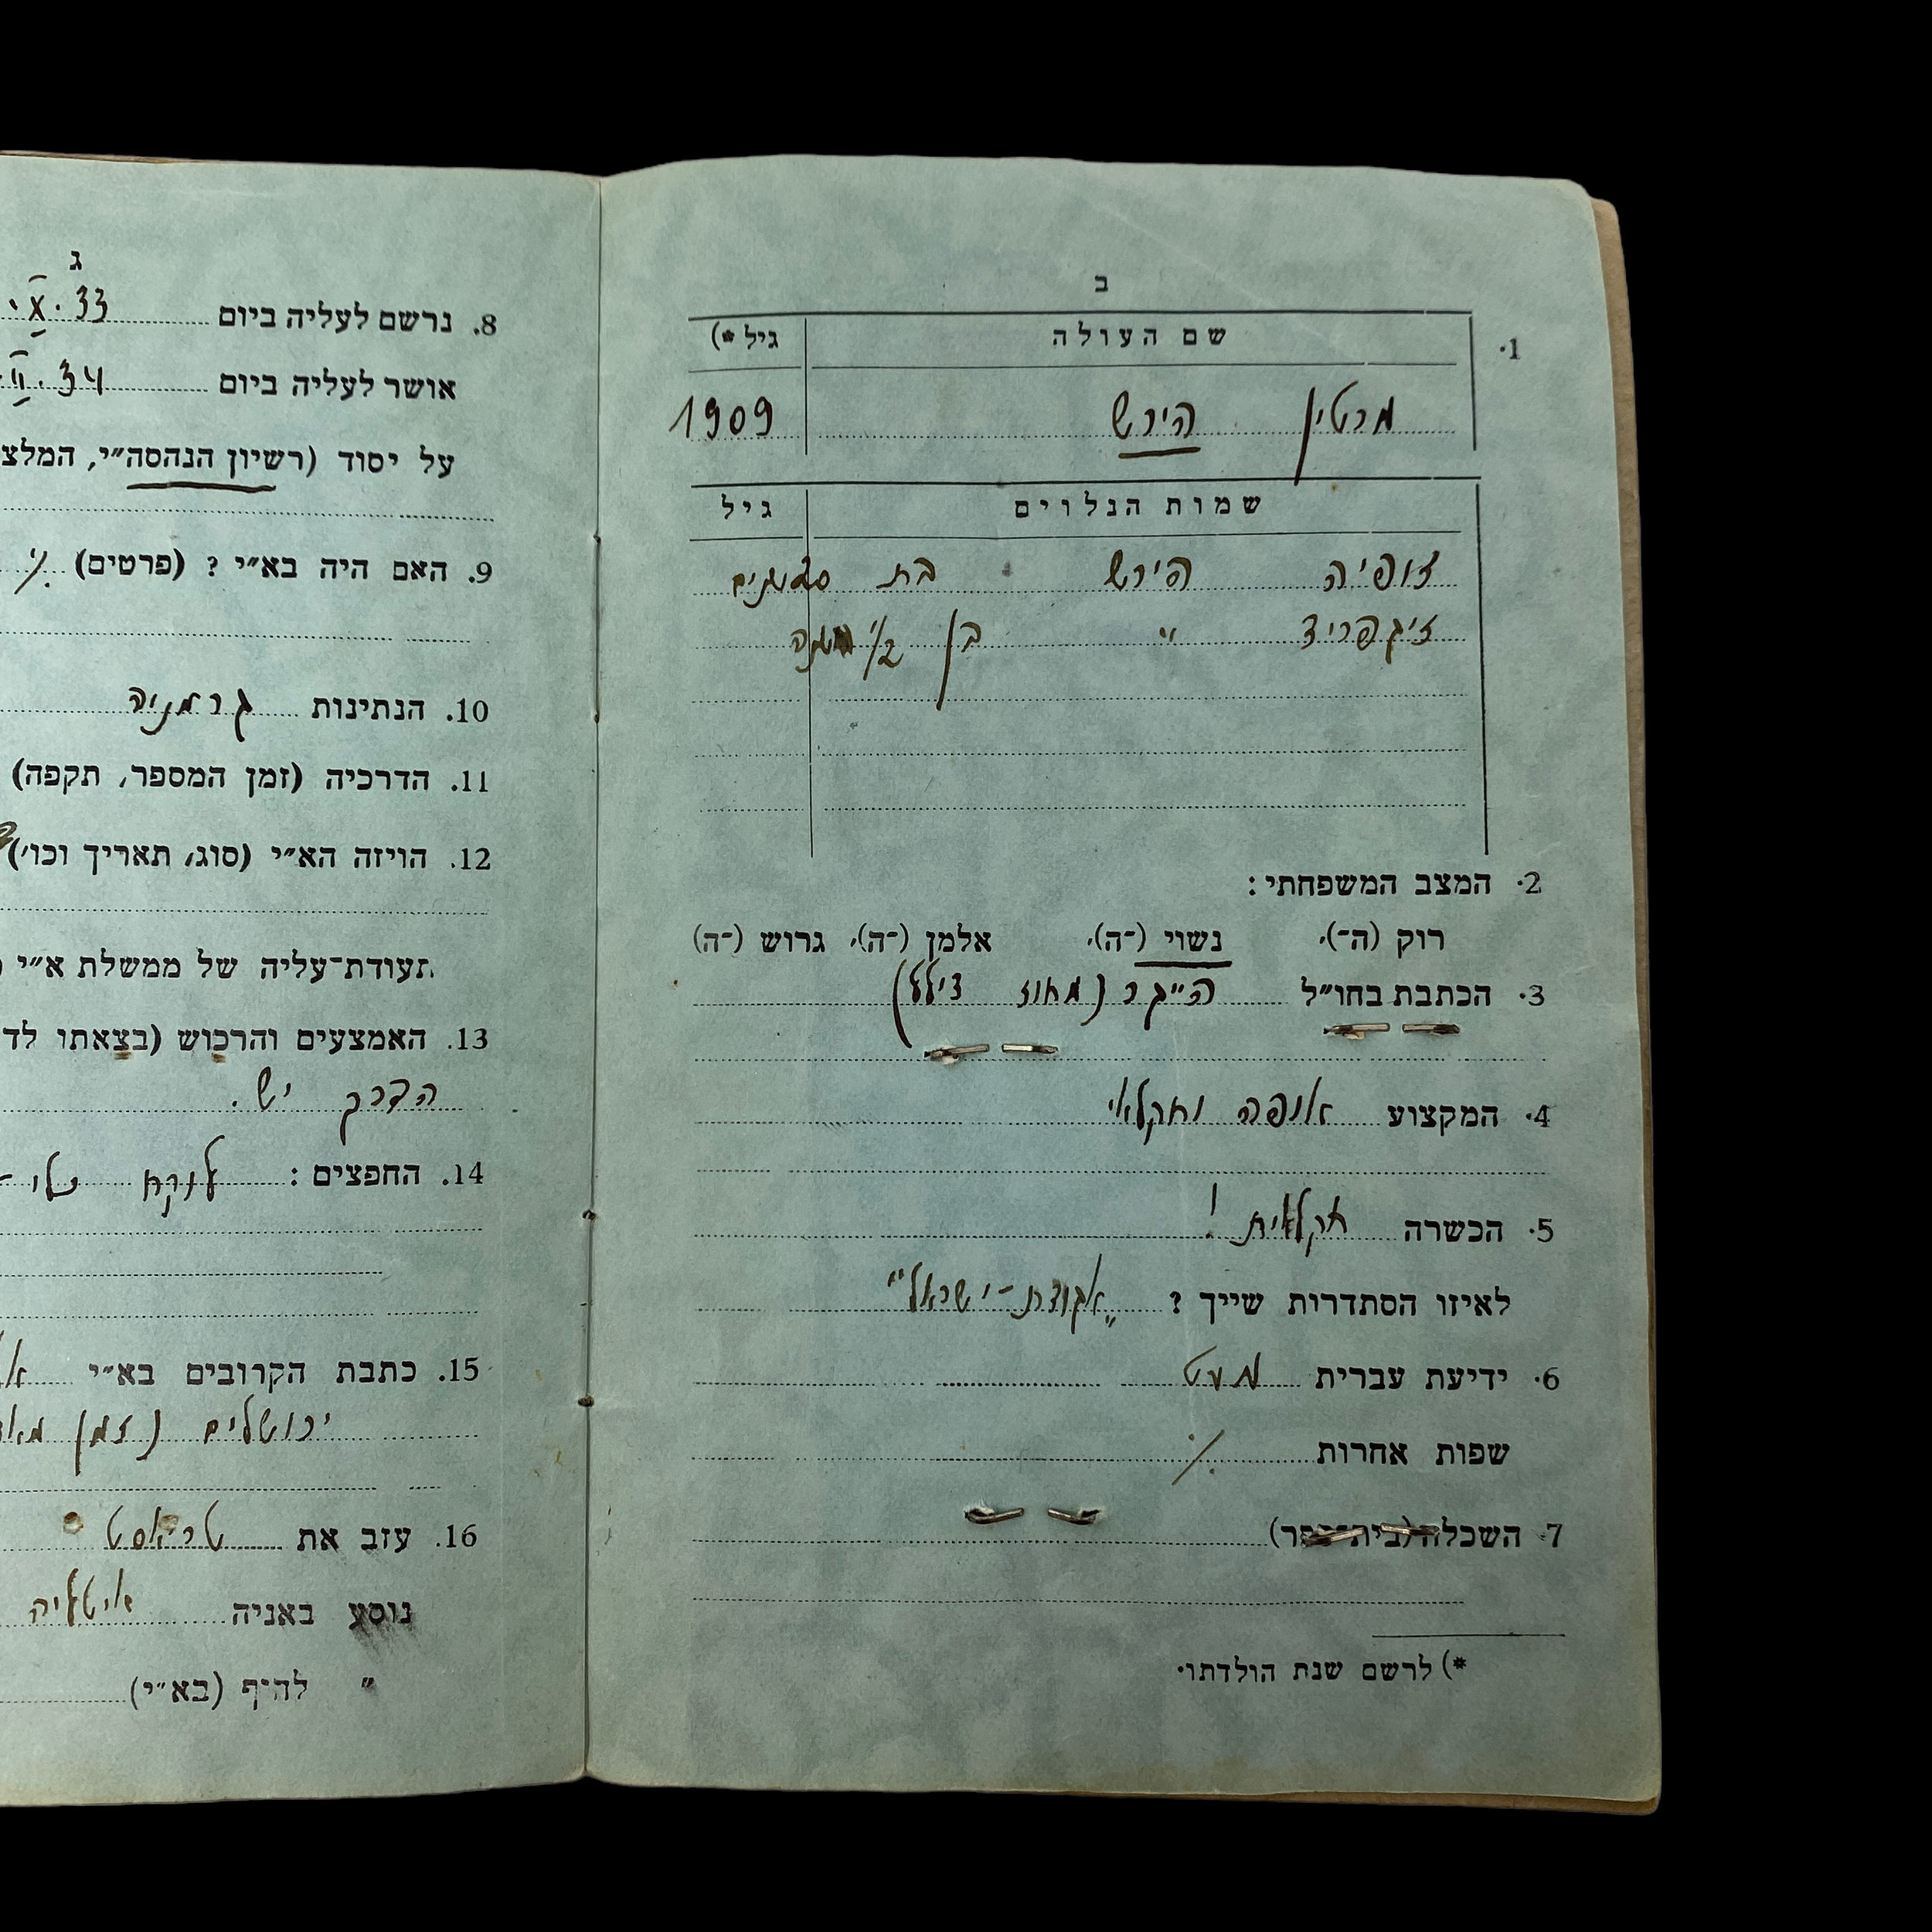 ב
1. שם העולה גיל *)
מרטין הירש 1909
שמות הנלוים גיל
זופיה הירש בת
זיגפריד " בן 1/2 שנה
2. המצב המשפחתי:
רוק (ה־), נשוי (־ה), אלמן (־ה), גרוש (־ה)
3. הכתבת בחו״ל
4. המקצוע אופה וחקלאי
5. הכשרה חקלאית!
לאיזו הסתדרות שייך? „אגודת-ישראל"
6. ידיעת עברית מעט
שפות אחרות ·/.
7. השכלה (בית־ספר)
*) לרשם שנת הולדתו.
ג
8. נרשם לעליה ביום X. 33
אושר לעליה ביום II. 34
על יסוד (רשיון הנהסה״י, המלצ
9. האם היה בא״י? (פרטים) ·/.
10. הנתינות גרמניה
11. הדרכיה (זמן המספר, תקפה)
12. הויזה הא״י (סוג, תאריך וכו׳)
תעודת־עליה של ממשלת א״י
13. האמצעים והרכוש (בצאתו לד
הדרך יש.
14. החפצים: לוקח
15. כתבת הקרובים בא״י
ירושלים (זמן
16. עזב את טריאסט
נוסע באניה איטליה
" להיף (בא״י)